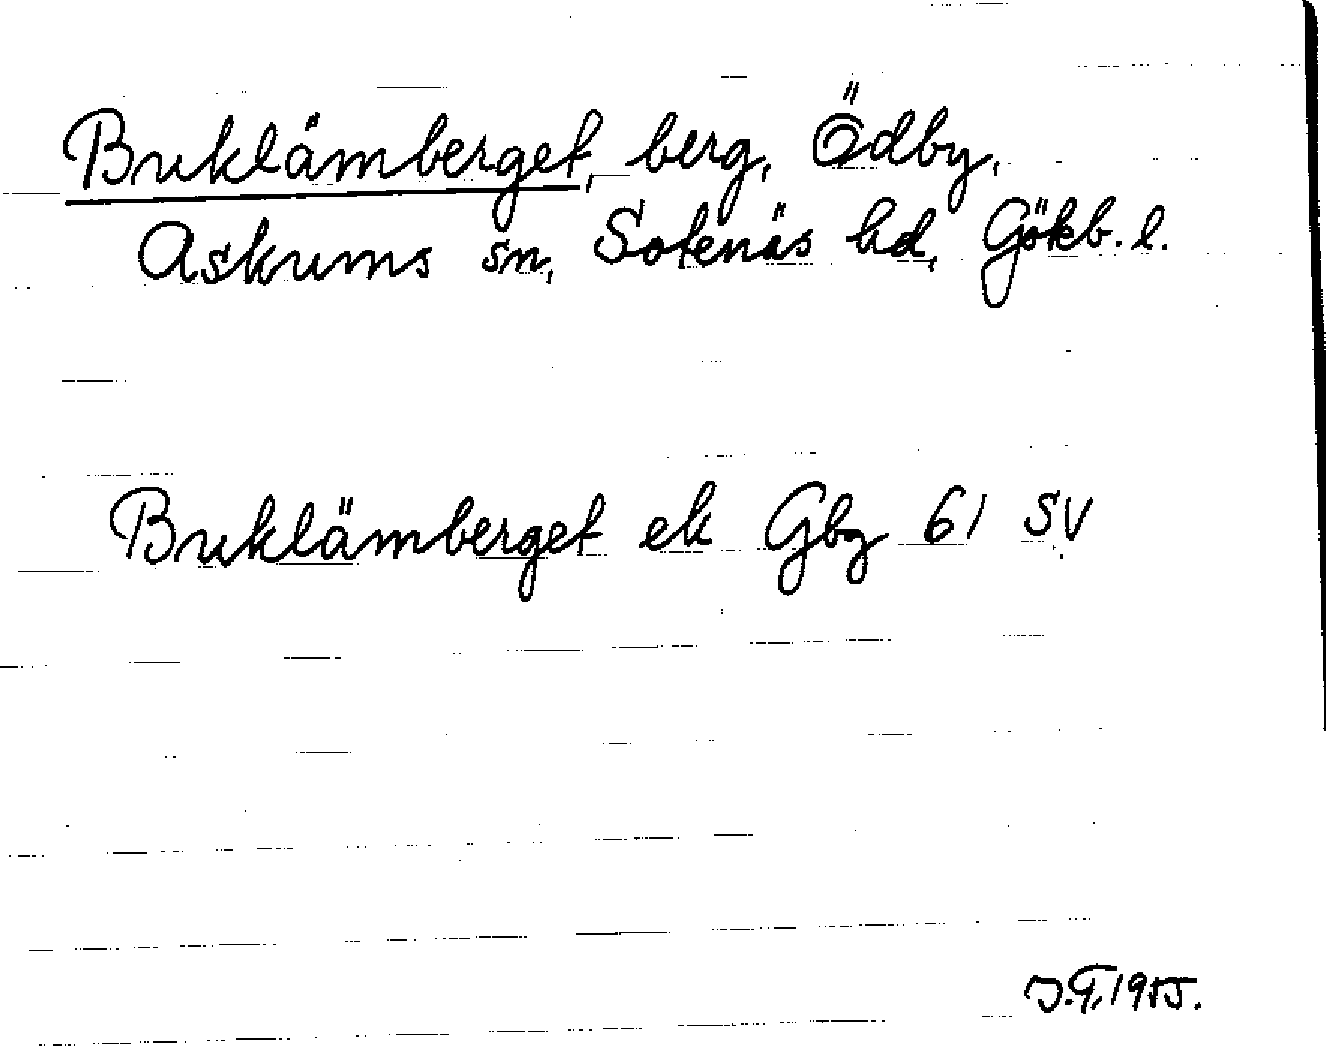 Buklämberget, berg, Ödby,
Askums sn, Sotenäs hd, Göteb. l.
Buklämberget ek Gbg 61 SV
1955.